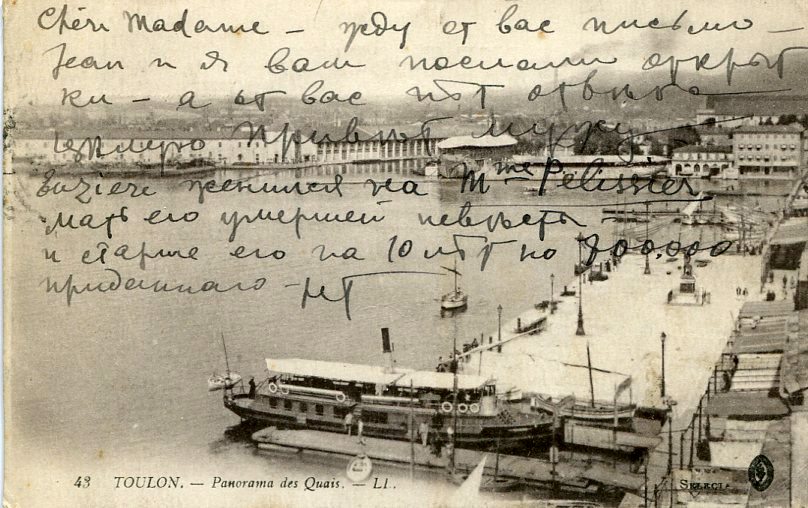 Chéri Madame – жду от вас письмо –
Jean и я вам послали открыт
ки – а от вас нѣт отвѣта
привѣт мужу
женился на Mme Pelissier
мать его умершей невѣсты –
и старше его на 10 лѣт но 800.000
приданнаго –
43 TOULON. — Panorama des Quais. — LL.
SELECTA